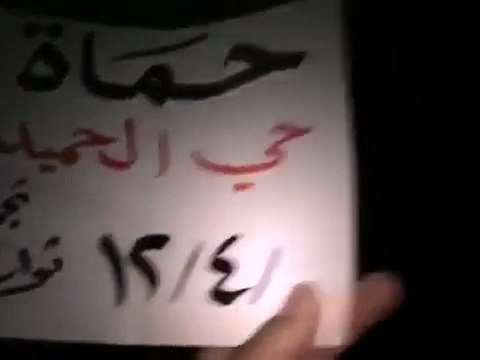 حماة
حي الحميد
١٢/٤/